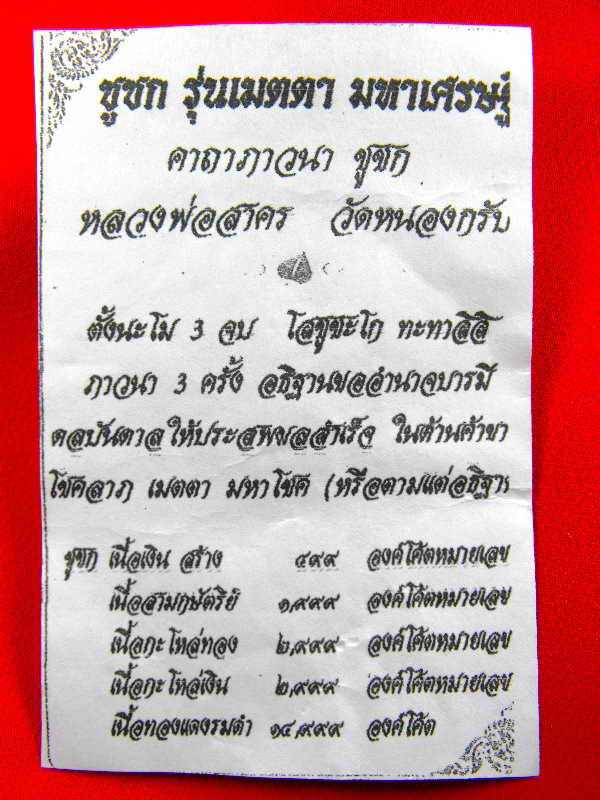 ชูชก รุ่นเมตตา มหาเศรษฐี
คาถาภาวนา ชูชก
หลวงพ่อสาคร วัดหนองกรับ
ตั้งนะโม 3 จบ โสชูชะโก ทะทาลิลิ
ภาวนา 3 ครั้ง อธิฐานขออำนาจบารมี
ดลบันดาลให้ประสพผลสำเร็จ ในด้านค้าขา
โชคลาภ เมตตา มหาโชค (หรือตามแต่อธิฐา
ชูชก เนื้อเงิน สร้าง ๔๙๙ องค์โค๊ตหมายเลข
เนื้อสามกษัตริย์ ๑,๙๙๙ องค์โค๊ตหมายเลข
เนื้อกะไหล่ทอง ๒,๙๙๙ องค์โค๊ตหมายเลข
เนื้อกะไหล่เงิน ๒,๙๙๙ องค์โค๊ตหมายเลข
เนื้อทองแดงรมดำ ๑๔,๙๙๙ องค์โค๊ต